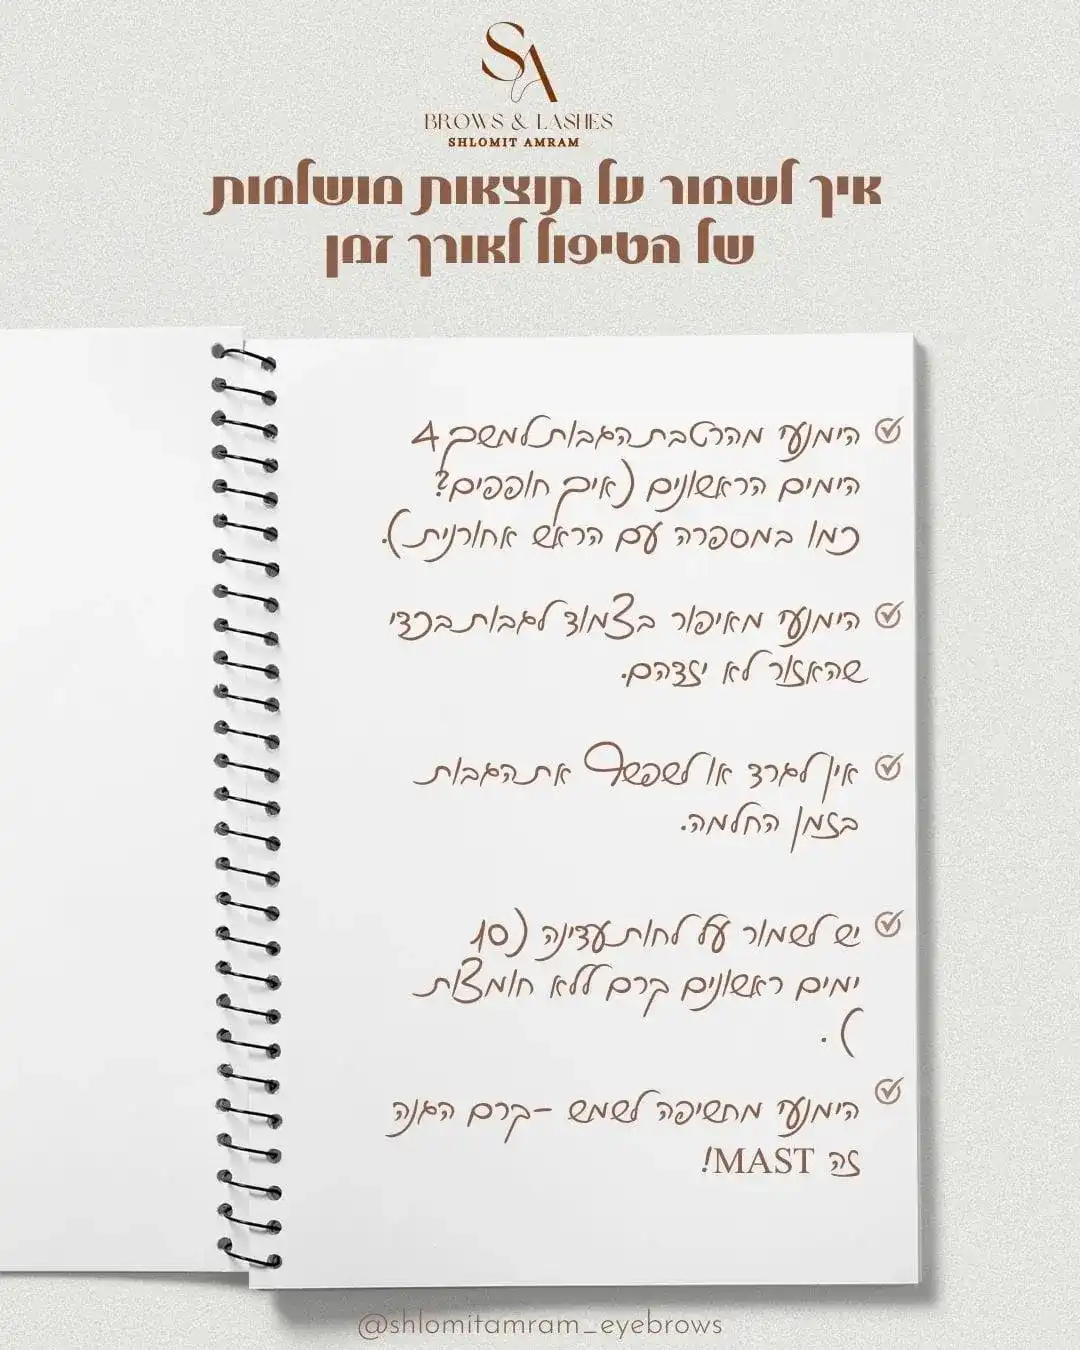 SA
BROWS & LASHES
SHLOMIT AMRAM
איך לשמור על תוצאות מושלמות
של הטיפול לאורך זמן
הימנעי מהרטבת הגבות למשך 4
הימים הראשונים (איך חופפים?
כמו במספרה עם הראש אחורנית).
הימנעי מאיפור בצמוד לגבות בכדי
שהאזור לא יזדהם.
אין לגרד או לשפשף את הגבות
בזמן החלמה.
יש לשמור על לחות עדינה (10
ימים ראשונים קרם ללא חומצות
).
הימנעי מחשיפה לשמש -קרם הגנה
זה MAST!
@shlomitamram_eyebrows